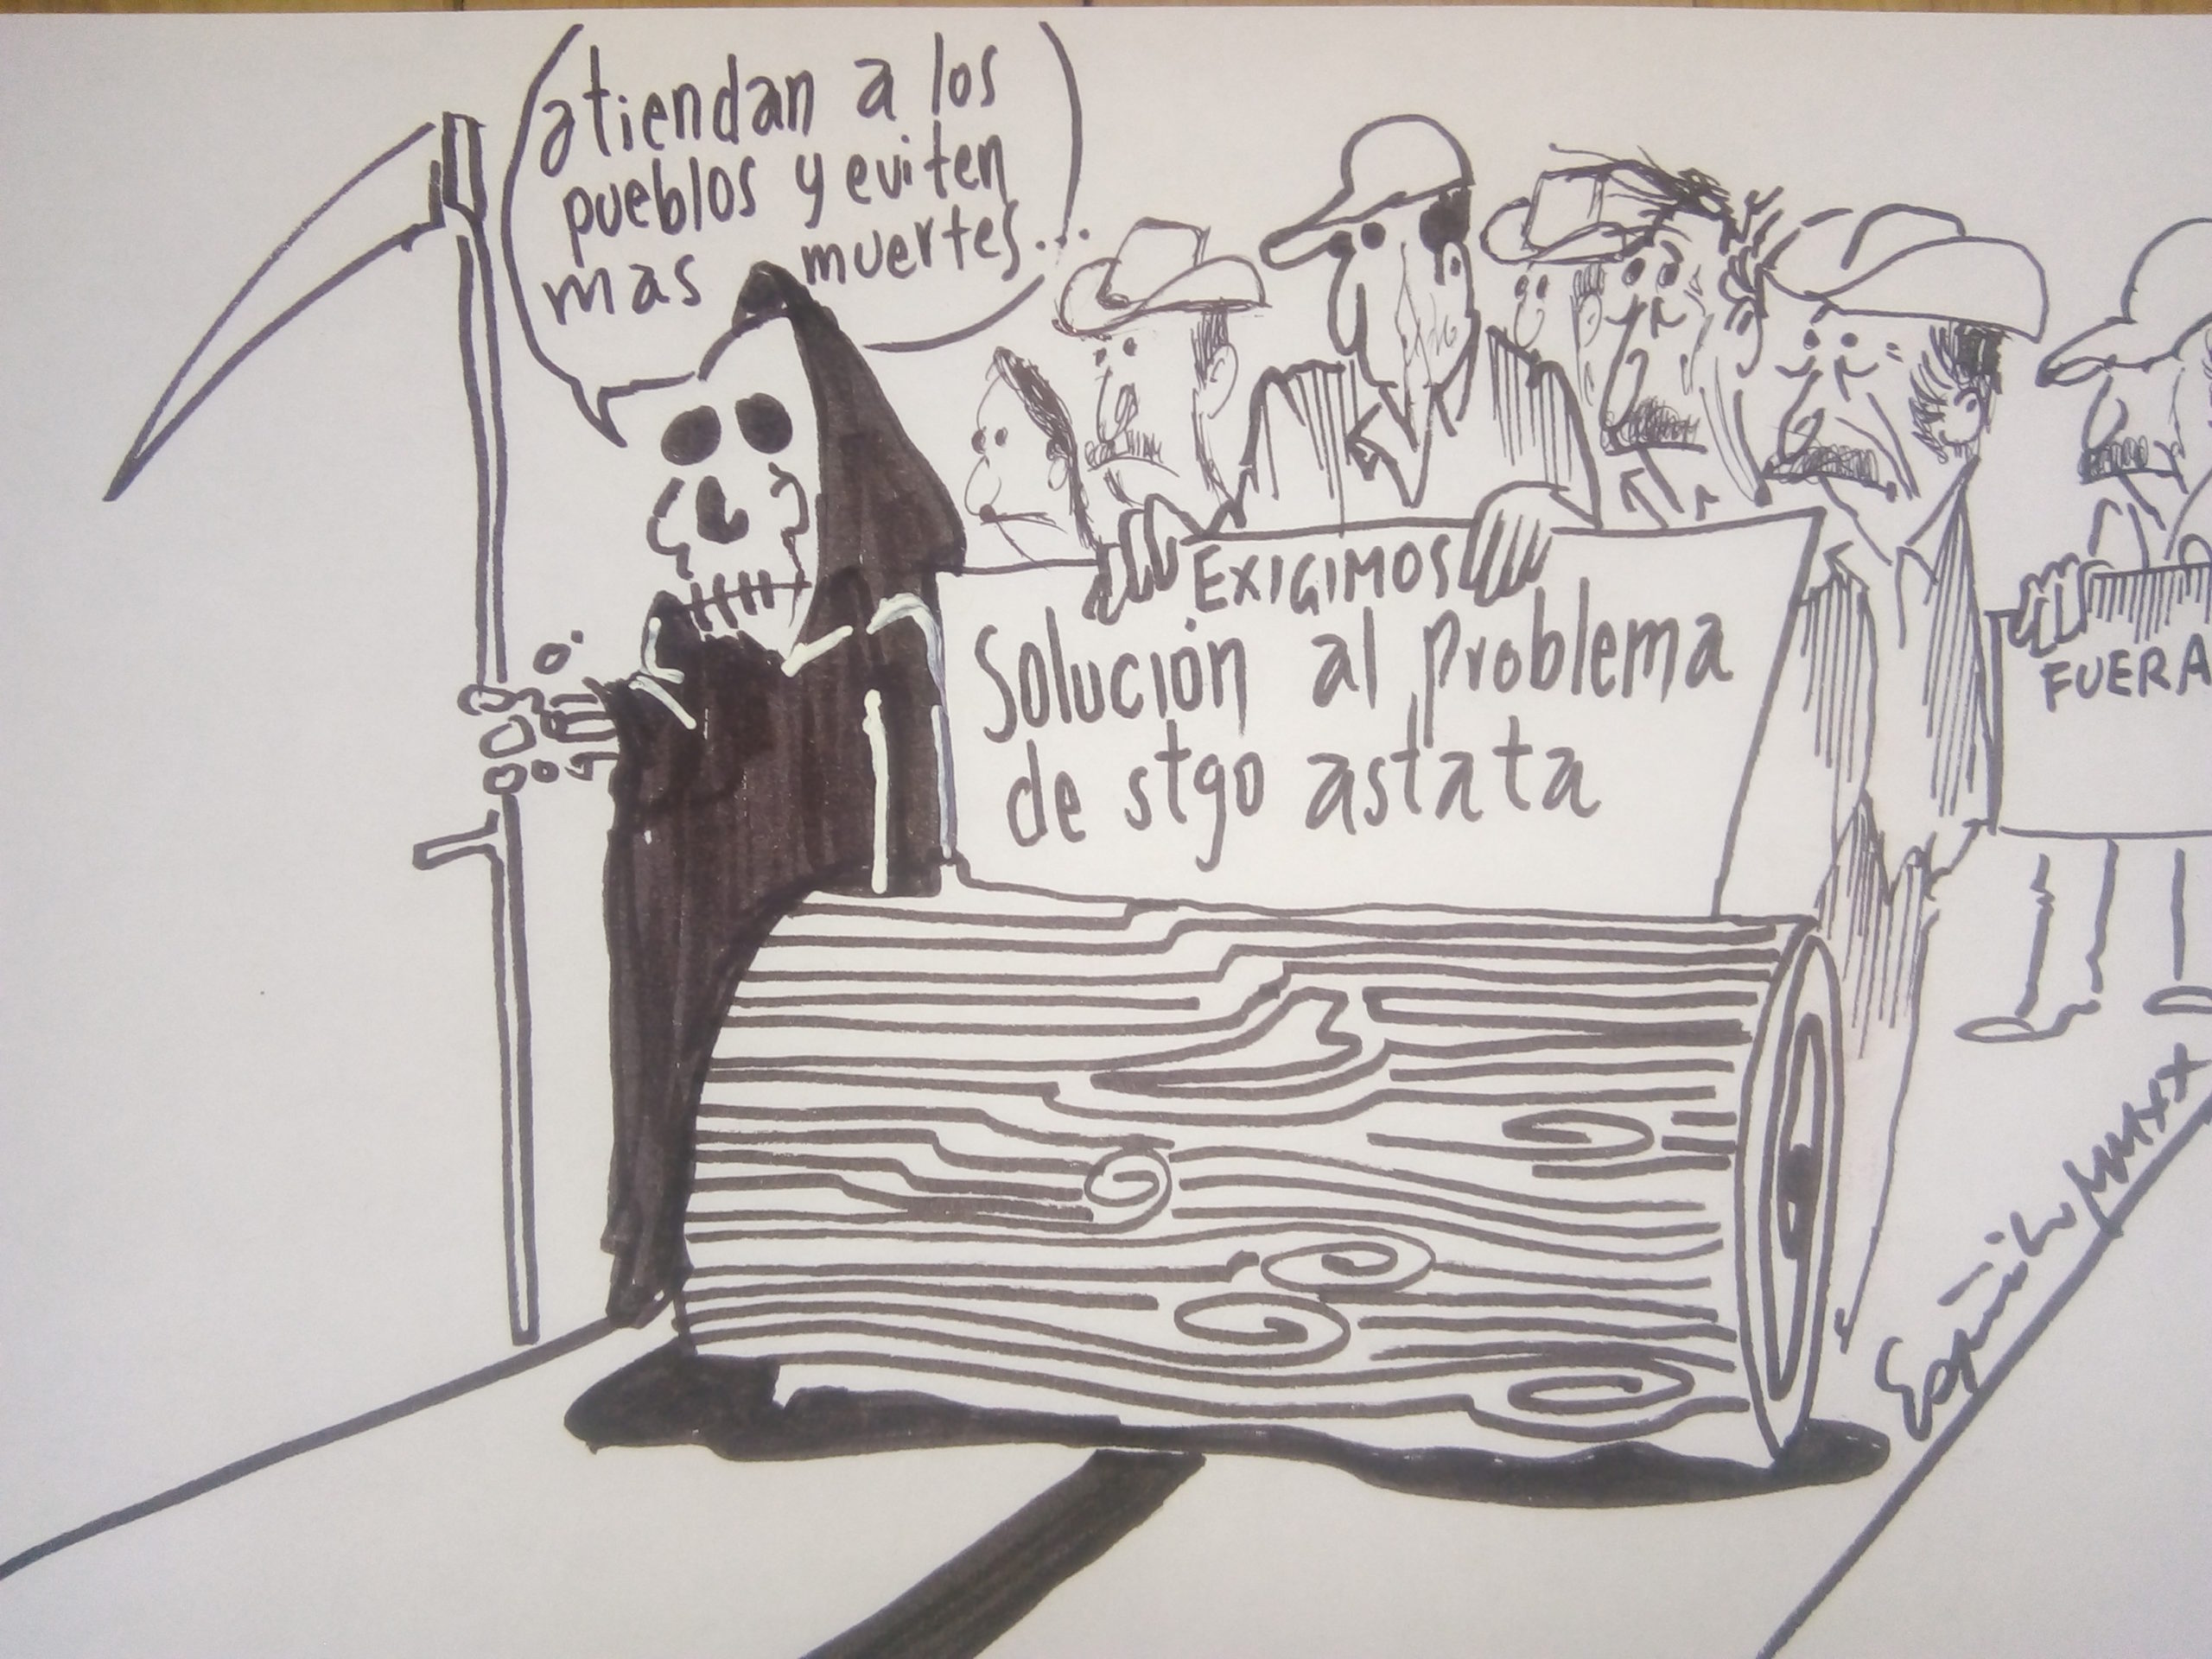 atiendan a los
pueblos y eviten
mas muertes...
EXIGIMOS
Solución al Problema
de stgo astata
FUERA